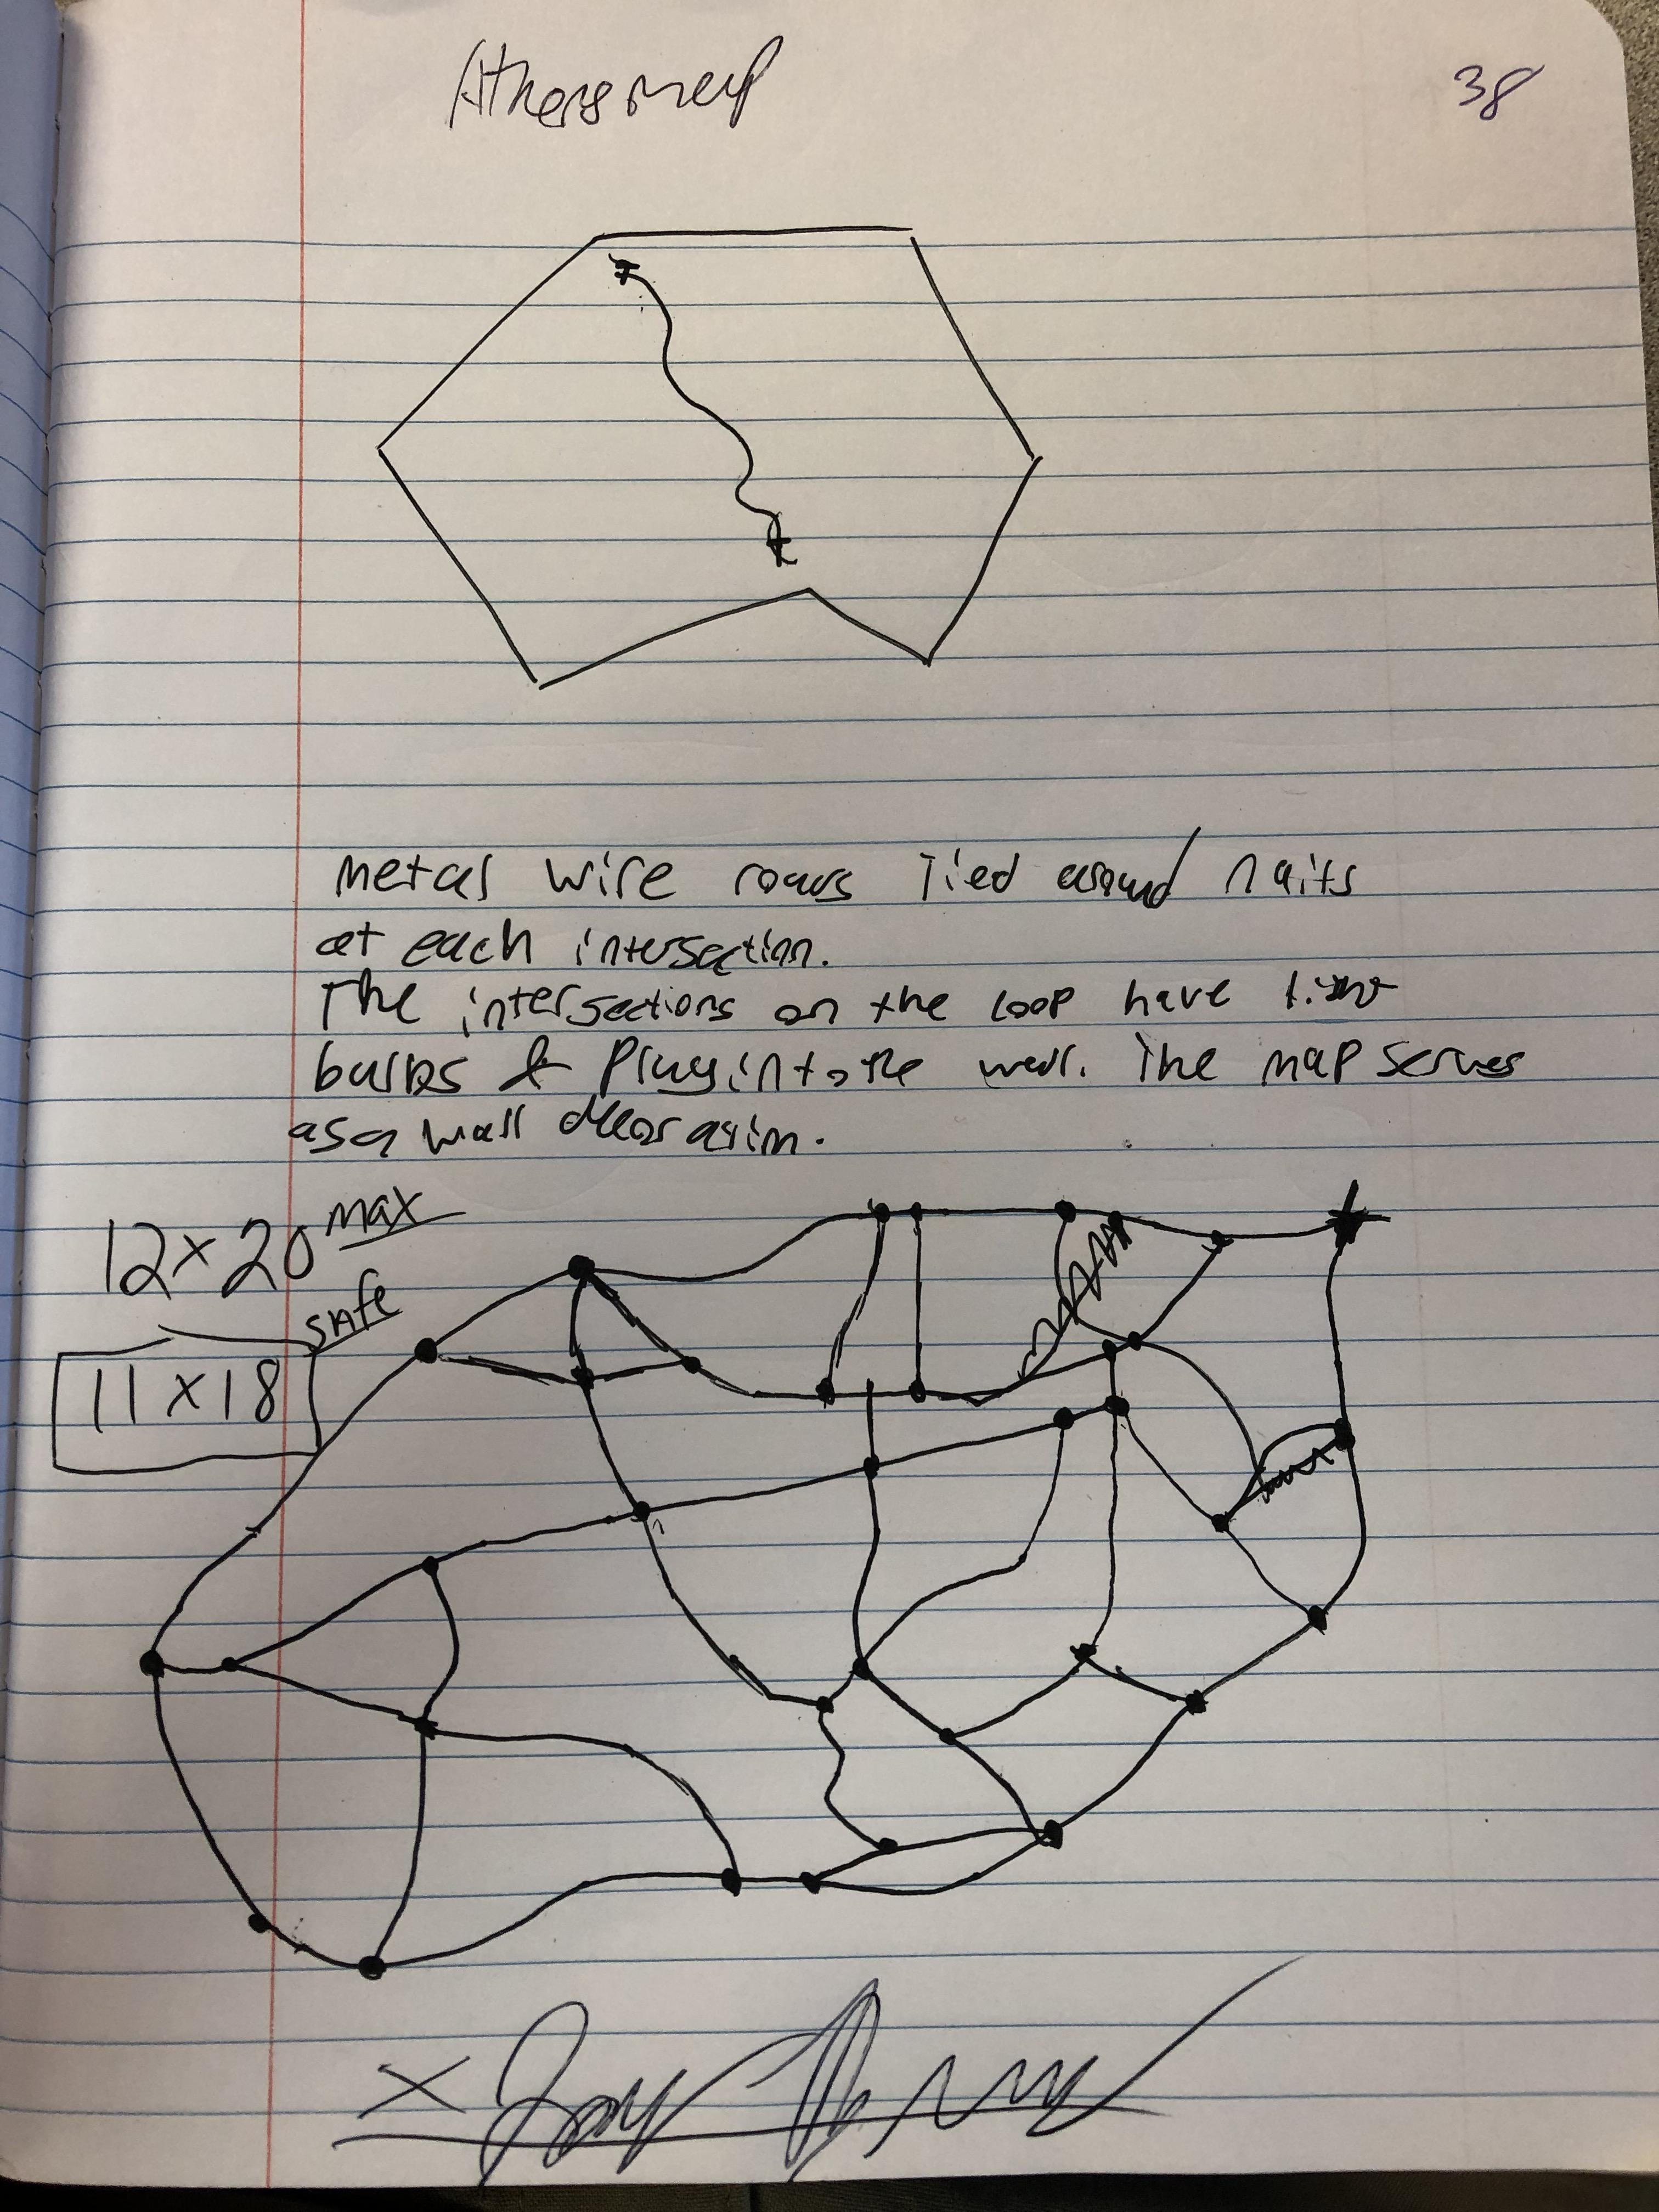 Athens map
38
Metal wire roads Tied around nails
at each intersection.
The intersections on the loop have light
bulbs & Plug into the wall. The map serves
as a wall decoration.
12 x 20 max
safe
11 x 18
X